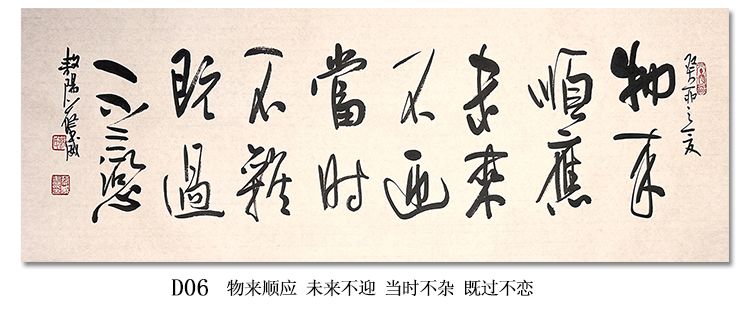 物來
順應
未來
不迎
當时
不雜
既過
不戀
D06 物来顺应 未来不迎 当时不杂 既过不恋